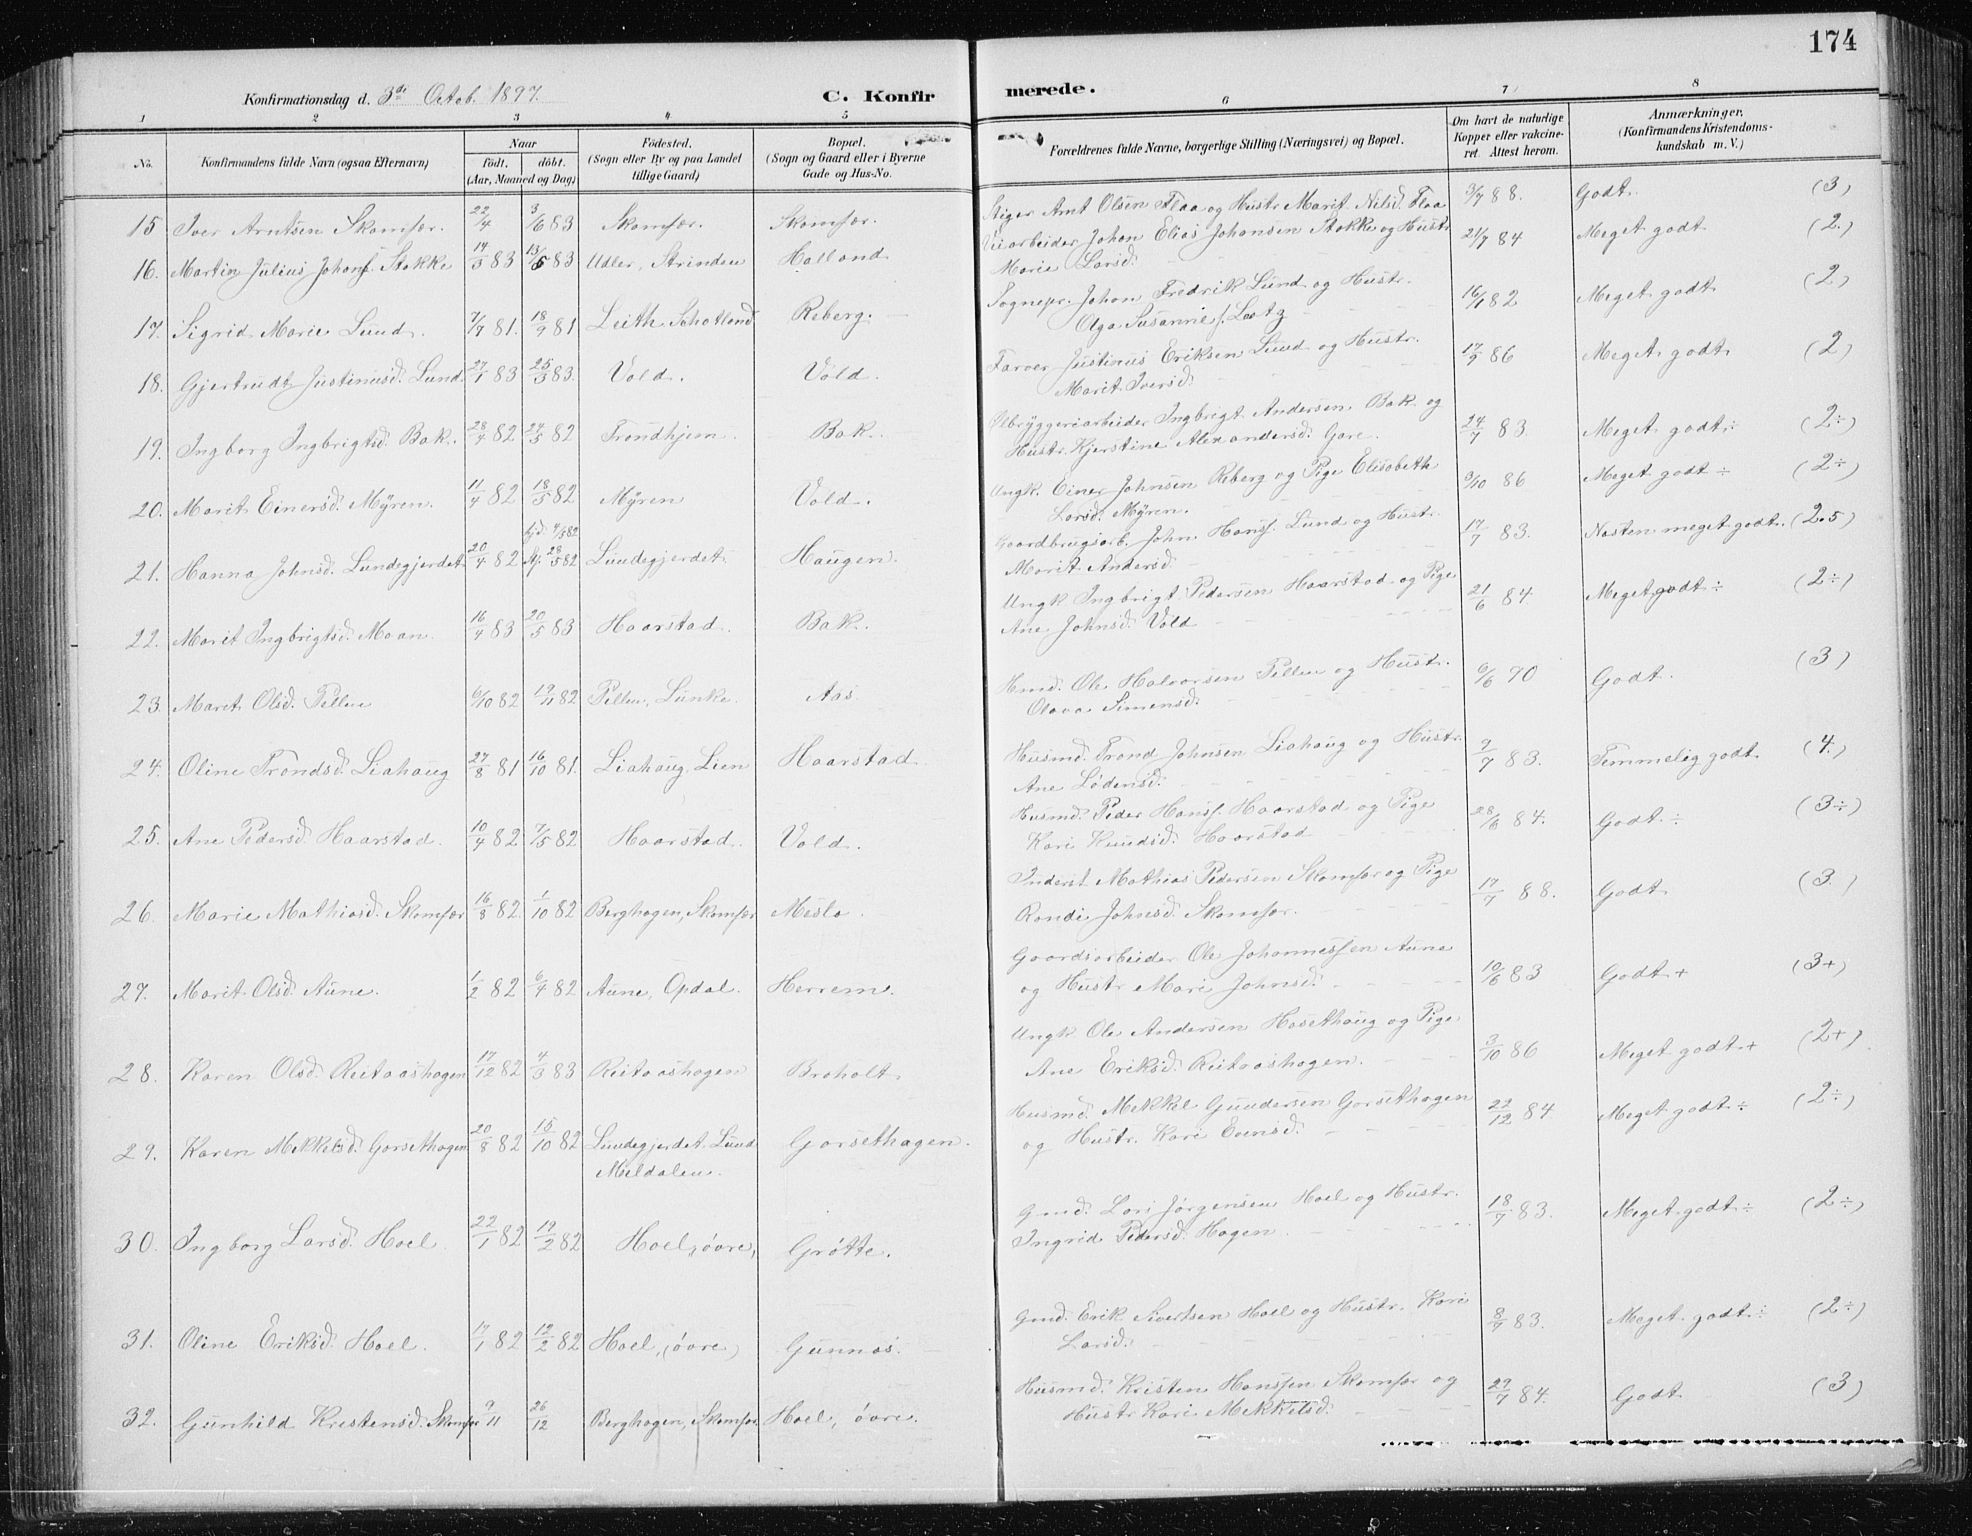 174
Konfirmationsdag d. 3de Octob. 1897.
C. Konfirmerede.
1 2 3 4 5 6 7 8
No. Konfirmandens fulde Navn (ogsaa Efternavn) Naar födt. döbt. (Aar, Maaned og Dag) Födested. (Sogn eller By og paa Landet tillige Gaard) Bopæl. (Sogn og Gaard eller i Byerne Gade og Hus-No. Forældrenes fulde Navne, borgerlige Stilling (Næringsvei) og Bopæl. Om havt de naturlige Kopper eller vakcineret. Attest herom. Anmærkninger. (Konfirmandens Kristendomskundskab m. V.)
15 Iver Arntsen Skomfær. 22/4 3/6 83 Skomfær. Skomfær. Stiger Arnt Olsen Flaa og Hustr. Marit Nilsd. Flaa 3/7 88. Godt. (3)
16. Martin Julius Johans. Stokke 14/3 83 13/5 83 Udler, Strinden Halland Veiarbeider Johan Elias Johansen Stokke og Hustr. 21/7 84 Meget godt (2.)
Marie Larsd.
17. Sigrid Marie Lund. 7/7 81. 18/9 81 Leith Schotland Reberg. Sognepr. Johan Fredrik Lund og Hustr. 16/11 82 Meget godt (2)
Aga Susanne f. Lootz
18. Gjertrudt Justinusd. Lund. 27/1 83 25/3 83. Vold. Vold. Farver Justinus Eriksen Lund og Hustr. 17/9 86 Meget godt (2)
Marit Iversd.
19. Ingborg Ingbrigtsd. Bak. 28/4 82 24/5 82 Trondhjem. Bak. Ølbryggeriarbeider Ingbrigt Andersen Bak og 24/7 83. Meget godt÷ (2÷)
Hustr. Kjerstine Alexandersd. Gare.
20. Marit Einersd. Mÿren. 11/4 82 18/5 82 Mÿren Vold. Ungk. Einer Johnsen Reberg og Pige Elisabeth 9/10 86 Meget godt ÷ (2÷)
Larsd. Mÿren.
21. Hanna Johnsd. Lundegjerdet. 20/4 82 hjd. 4/5 82 28/5 82 Lundegjerdet Haugen. Gaardbrugsarb. John Hans. Lund og Hustr. 17/7 83. Næsten meget godt. (2.5)
Marit Andersd.
22. Marit Ingbrigtsd. Moan. 16/4 83 20/5 83 Haarstad. Bak. Ungk Ingbrigt Pedersen Haarstad og Pige 21/6 84. Meget godt ÷ (2÷)
Ane Johnsd. Vold
23. Marit Olsd. Pellen 6/10 82 19/11 82 Pellen, Lunke. Aas Hmd. Ole Halvorsen Pellen og Hustr. 6/6 90 Godt. (3)
Olava Simensd.
24. Oline Trondsd. Liahaug 27/8 81 16/10 81. Liahaug, Lien Haarstad Husmd. Trond Johnsen Liahaug og Hustr. 9/7 83. Temmelig godt (4.)
Ane Lødensd.
25. Ane Pedersd. Haarstad. 10/4 82 7/5 82 Haarstad. Vold. Husmd. Peder Hans. Haarstad og Pige 28/6 84. Godt ÷ (3÷)
Kari Knudsd. Haarstad
26. Marie Mathiasd. Skomfær 16/8 82. 1/10 82 Berghagen, Skomfær Meslo. Inderst Mathias Pedersen Skomfær og Pige 17/7 88. Godt (3.)
Randi Johnsd. Skomfær.
27. Marit Olsd. Aune. 1/2 82 6/4 82 Aune, Opdal. Herrem. Gaardsarbeider Ole Johannessen Aune 10/6 83 Godt + (3+)
og Hustr Mari Johnsd.
28. Karen Olsd. Reitaashagen 17/12 82 4/3 83 Reitaashagen Broholt Ungk Ole Andersen Hasethaug og Pige 3/10 86 Meget godt + (2+)
Ane Eriksd. Reitaashagen.
29. Karen Mekkelsd. Gorsethagen 20/8 82 15/10 82 Lundegjerdet Lund Gorsethagen. Husmd. Mekkel Gundersen Gorsethagen 22/12 84 Meget godt ÷ (2÷)
Meldalen. og Hustr. Kari Evensd.
30. Ingborg Larsd. Hoel 22/1 82 19/2 82 Hoel, øvre, Grøtte. Gmd. Lars Jørgensen Hoel og Hustr. 18/7 83. Meget godt ÷ (2÷)
Ingrid Pedersd. Hagen
31. Oline Eriksd. Hoel. 17/1 82 12/2 82 Hoel, (øvre) Gunnes. Gmd. Erik Sivertsen Hoel og Hustr. Kari 8/7 83. Meget godt ÷ (2÷)
Larsd.
32. Gunhild Kristensd. Skomfær 9/11 26/12 Berghagen, Skomfær Hoel, øvre. Husmd. Kristen Hanssen Skomfær og 29/7 84. Godt (3)
Hustr Kari Mekkelsd.